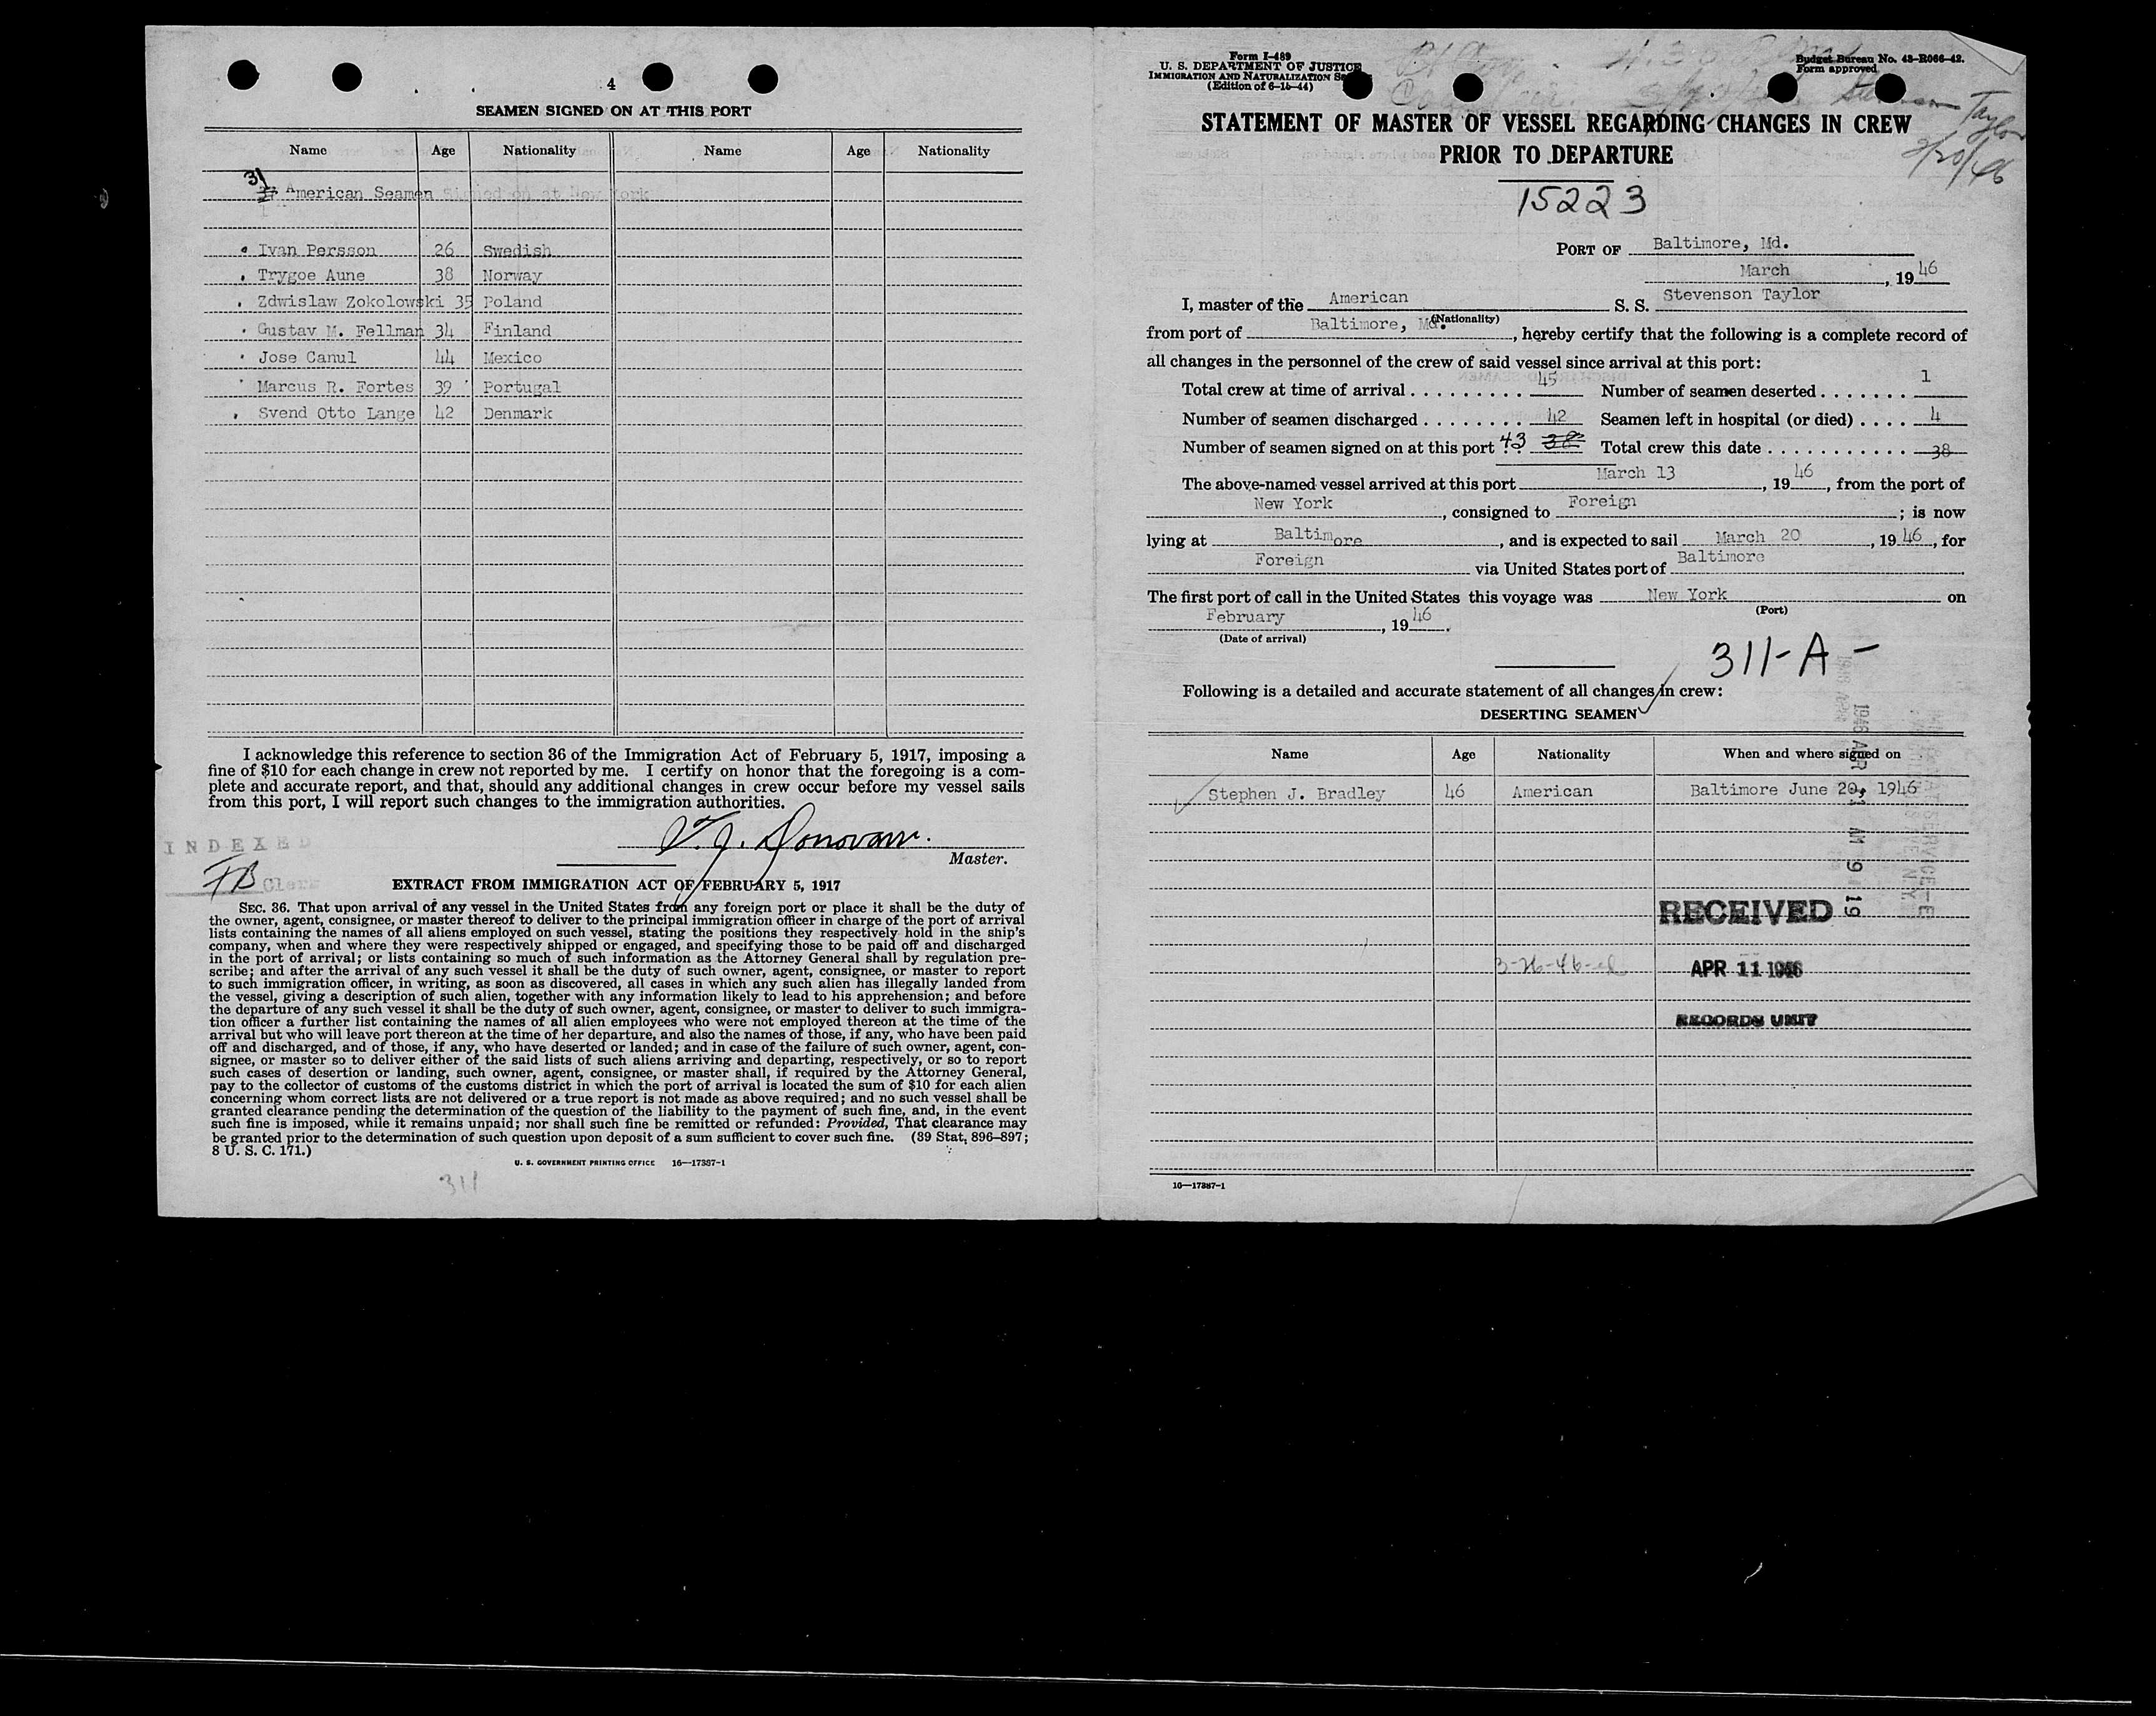 4
SEAMEN SIGNED ON AT THIS PORT
Name Age Nationality Name Age Nationality
31 American Seamen Signed on at New York
Ivan Persson 26 Swedish
Trygoe Aune 38 Norway
Zdwislaw Zokolowski 35 Poland
Gustav M. Fellman 34 Finland
Jose Canul 44 Mexico
Marcus R. Fortes 39 Portugal
Svend Otto Lange 42 Denmark
I acknowledge this reference to section 36 of the Immigration Act of February 5, 1917, imposing a
fine of $10 for each change in crew not reported by me. I certify on honor that the foregoing is a com-
plete and accurate report, and that, should any additional changes in crew occur before my vessel sails
from this port, I will report such changes to the immigration authorities.
INDEXED
J. Donovan.
Master.
FB Clerk
EXTRACT FROM IMMIGRATION ACT OF FEBRUARY 5, 1917
SEC. 36. That upon arrival of any vessel in the United States from any foreign port or place it shall be the duty of
the owner, agent, consignee, or master thereof to deliver to the principal immigration officer in charge of the port of arrival
lists containing the names of all aliens employed on such vessel, stating the positions they respectively hold in the ship's
company, when and where they were respectively shipped or engaged, and specifying those to be paid off and discharged
in the port of arrival; or lists containing so much of such information as the Attorney General shall by regulation pre-
scribe; and after the arrival of any such vessel it shall be the duty of such owner, agent, consignee, or master to report
to such immigration officer, in writing, as soon as discovered, all cases in which any such alien has illegally landed from
the vessel, giving a description of such alien, together with any information likely to lead to his apprehension; and before
the departure of any such vessel it shall be the duty of such owner, agent, consignee, or master to deliver to such immigra-
tion officer a further list containing the names of all alien employees who were not employed thereon at the time of the
arrival but who will leave port thereon at the time of her departure, and also the names of those, if any, who have been paid
off and discharged, and of those, if any, who have deserted or landed; and in case of the failure of such owner, agent, con-
signee, or master so to deliver either of the said lists of such aliens arriving and departing, respectively, or so to report
such cases of desertion or landing, such owner, agent, consignee, or master shall, if required by the Attorney General,
pay to the collector of customs of the customs district in which the port of arrival is located the sum of $10 for each alien
concerning whom correct lists are not delivered or a true report is not made as above required; and no such vessel shall be
granted clearance pending the determination of the question of the liability to the payment of such fine, and, in the event
such fine is imposed, while it remains unpaid; nor shall such fine be remitted or refunded: Provided, That clearance may
be granted prior to the determination of such question upon deposit of a sum sufficient to cover such fine. (39 Stat. 896-897;
8 U. S. C. 171.)
U. S. GOVERNMENT PRINTING OFFICE 16—17387-1
311
Form I-489
U. S. DEPARTMENT OF JUSTICE
IMMIGRATION AND NATURALIZATION
(Edition of 6-15-44)
Budget Bureau No. 43-R066-42.
Form approved
Taylor
3/20/46
STATEMENT OF MASTER OF VESSEL REGARDING CHANGES IN CREW
PRIOR TO DEPARTURE
15223
PORT OF Baltimore, Md.
March, 1946
I, master of the American S. S. Stevenson Taylor
(Nationality)
from port of Baltimore, Md., hereby certify that the following is a complete record of
all changes in the personnel of the crew of said vessel since arrival at this port:
Total crew at time of arrival 45 Number of seamen deserted 1
Number of seamen discharged 42 Seamen left in hospital (or died) 4
Number of seamen signed on at this port 43 38 Total crew this date 38
The above-named vessel arrived at this port March 13, 1946, from the port of
New York, consigned to Foreign; is now
lying at Baltimore, and is expected to sail March 20, 1946, for
Foreign via United States port of Baltimore
The first port of call in the United States this voyage was New York on
(Port)
February, 1946.
(Date of arrival)
311-A-
Following is a detailed and accurate statement of all changes in crew:
DESERTING SEAMEN
Name Age Nationality When and where signed on
Stephen J. Bradley 46 American Baltimore June 20, 1946
RECEIVED
3-26-46
APR 11 1946
RECORDS UNIT
1946 APR 11 AM 9 19
16—17387-1